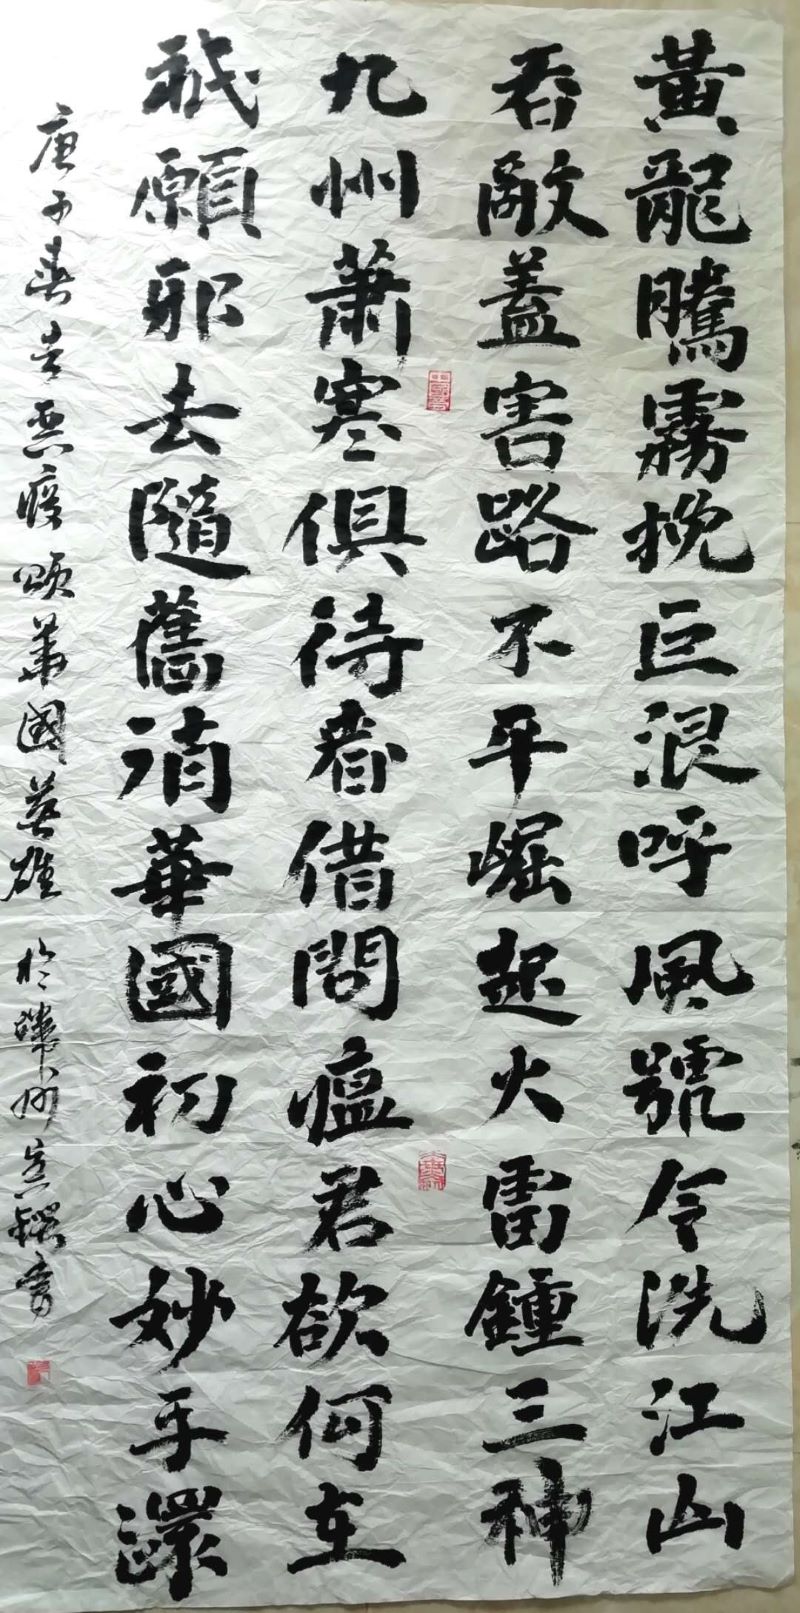 黃龍騰霧挽巨浪呼風號令洗江山
吞敵蓋害路不平崛起火雷鍾三神
九州蕭寒俱待春借問瘟君欲何在
祇願邪去隨舊消華國初心妙手還
庚子春去惡疫頌華國英雄 於 州 書